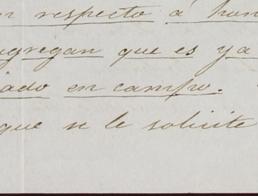 n respecto á hon
gregan que es ya
iado en campo.
que se le solicite